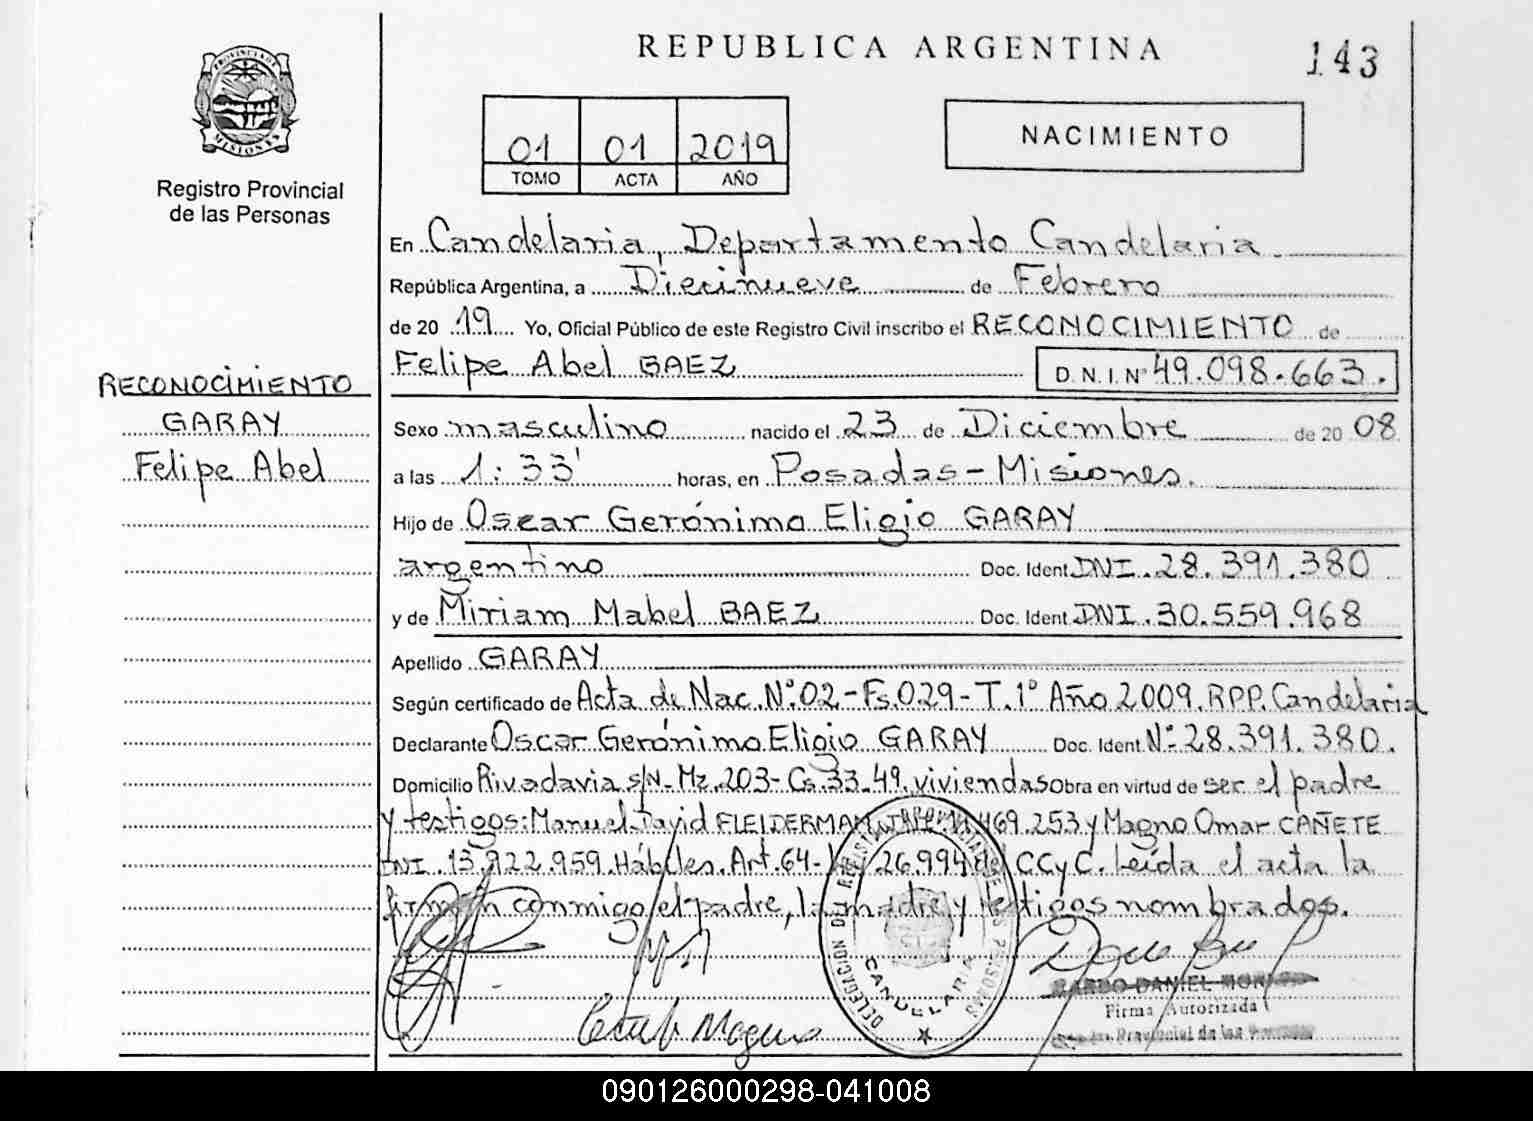 REPUBLICA ARGENTINA
143
PROVINCIA DE
MISIONES
Registro Provincial
de las Personas
01 01 2019
TOMO ACTA AÑO
NACIMIENTO
En Candelaria, Departamento Candelaria
República Argentina, a Diecinueve de Febrero
de 20 19 Yo, Oficial Público de este Registro Civil inscribo el RECONOCIMIENTO de
Felipe Abel BAEZ D.N.I. Nº 49.098.663.
RECONOCIMIENTO
GARAY
Felipe Abel
Sexo masculino nacido el 23 de Diciembre de 20 08
a las 1:33' horas, en Posadas - Misiones.
Hijo de Oscar Gerónimo Eligio GARAY
argentino Doc. Ident. DNI. 28.391.380
y de Miriam Mabel BAEZ Doc. Ident. DNI. 30.559.968
Apellido GARAY
Según certificado de Acta de Nac. Nº.02 - Fs.029 - T.1º Año 2009. RPP. Candelaria
Declarante Oscar Gerónimo Eligio GARAY Doc. Ident Nº 28.391.380.
Domicilio Rivadavia s/N - Mz. 203 - Cs. 33. 49. viviendas Obra en virtud de ser el padre
y testigos: Manuel David FLEIDERMAN, 469.253 y Magno Omar CAÑETE
DNI. 13.922.959. Hábiles. Art. 64 - 26.994 del CCyC. Leída el acta la
firman conmigo el padre, la madre y testigos nombrados.
DELEGACION DEL REGISTRO PROVINCIAL DE LAS PERSONAS
CANDELARIA
DANIEL
Firma Autorizada
Provincial de las
090126000298-041008